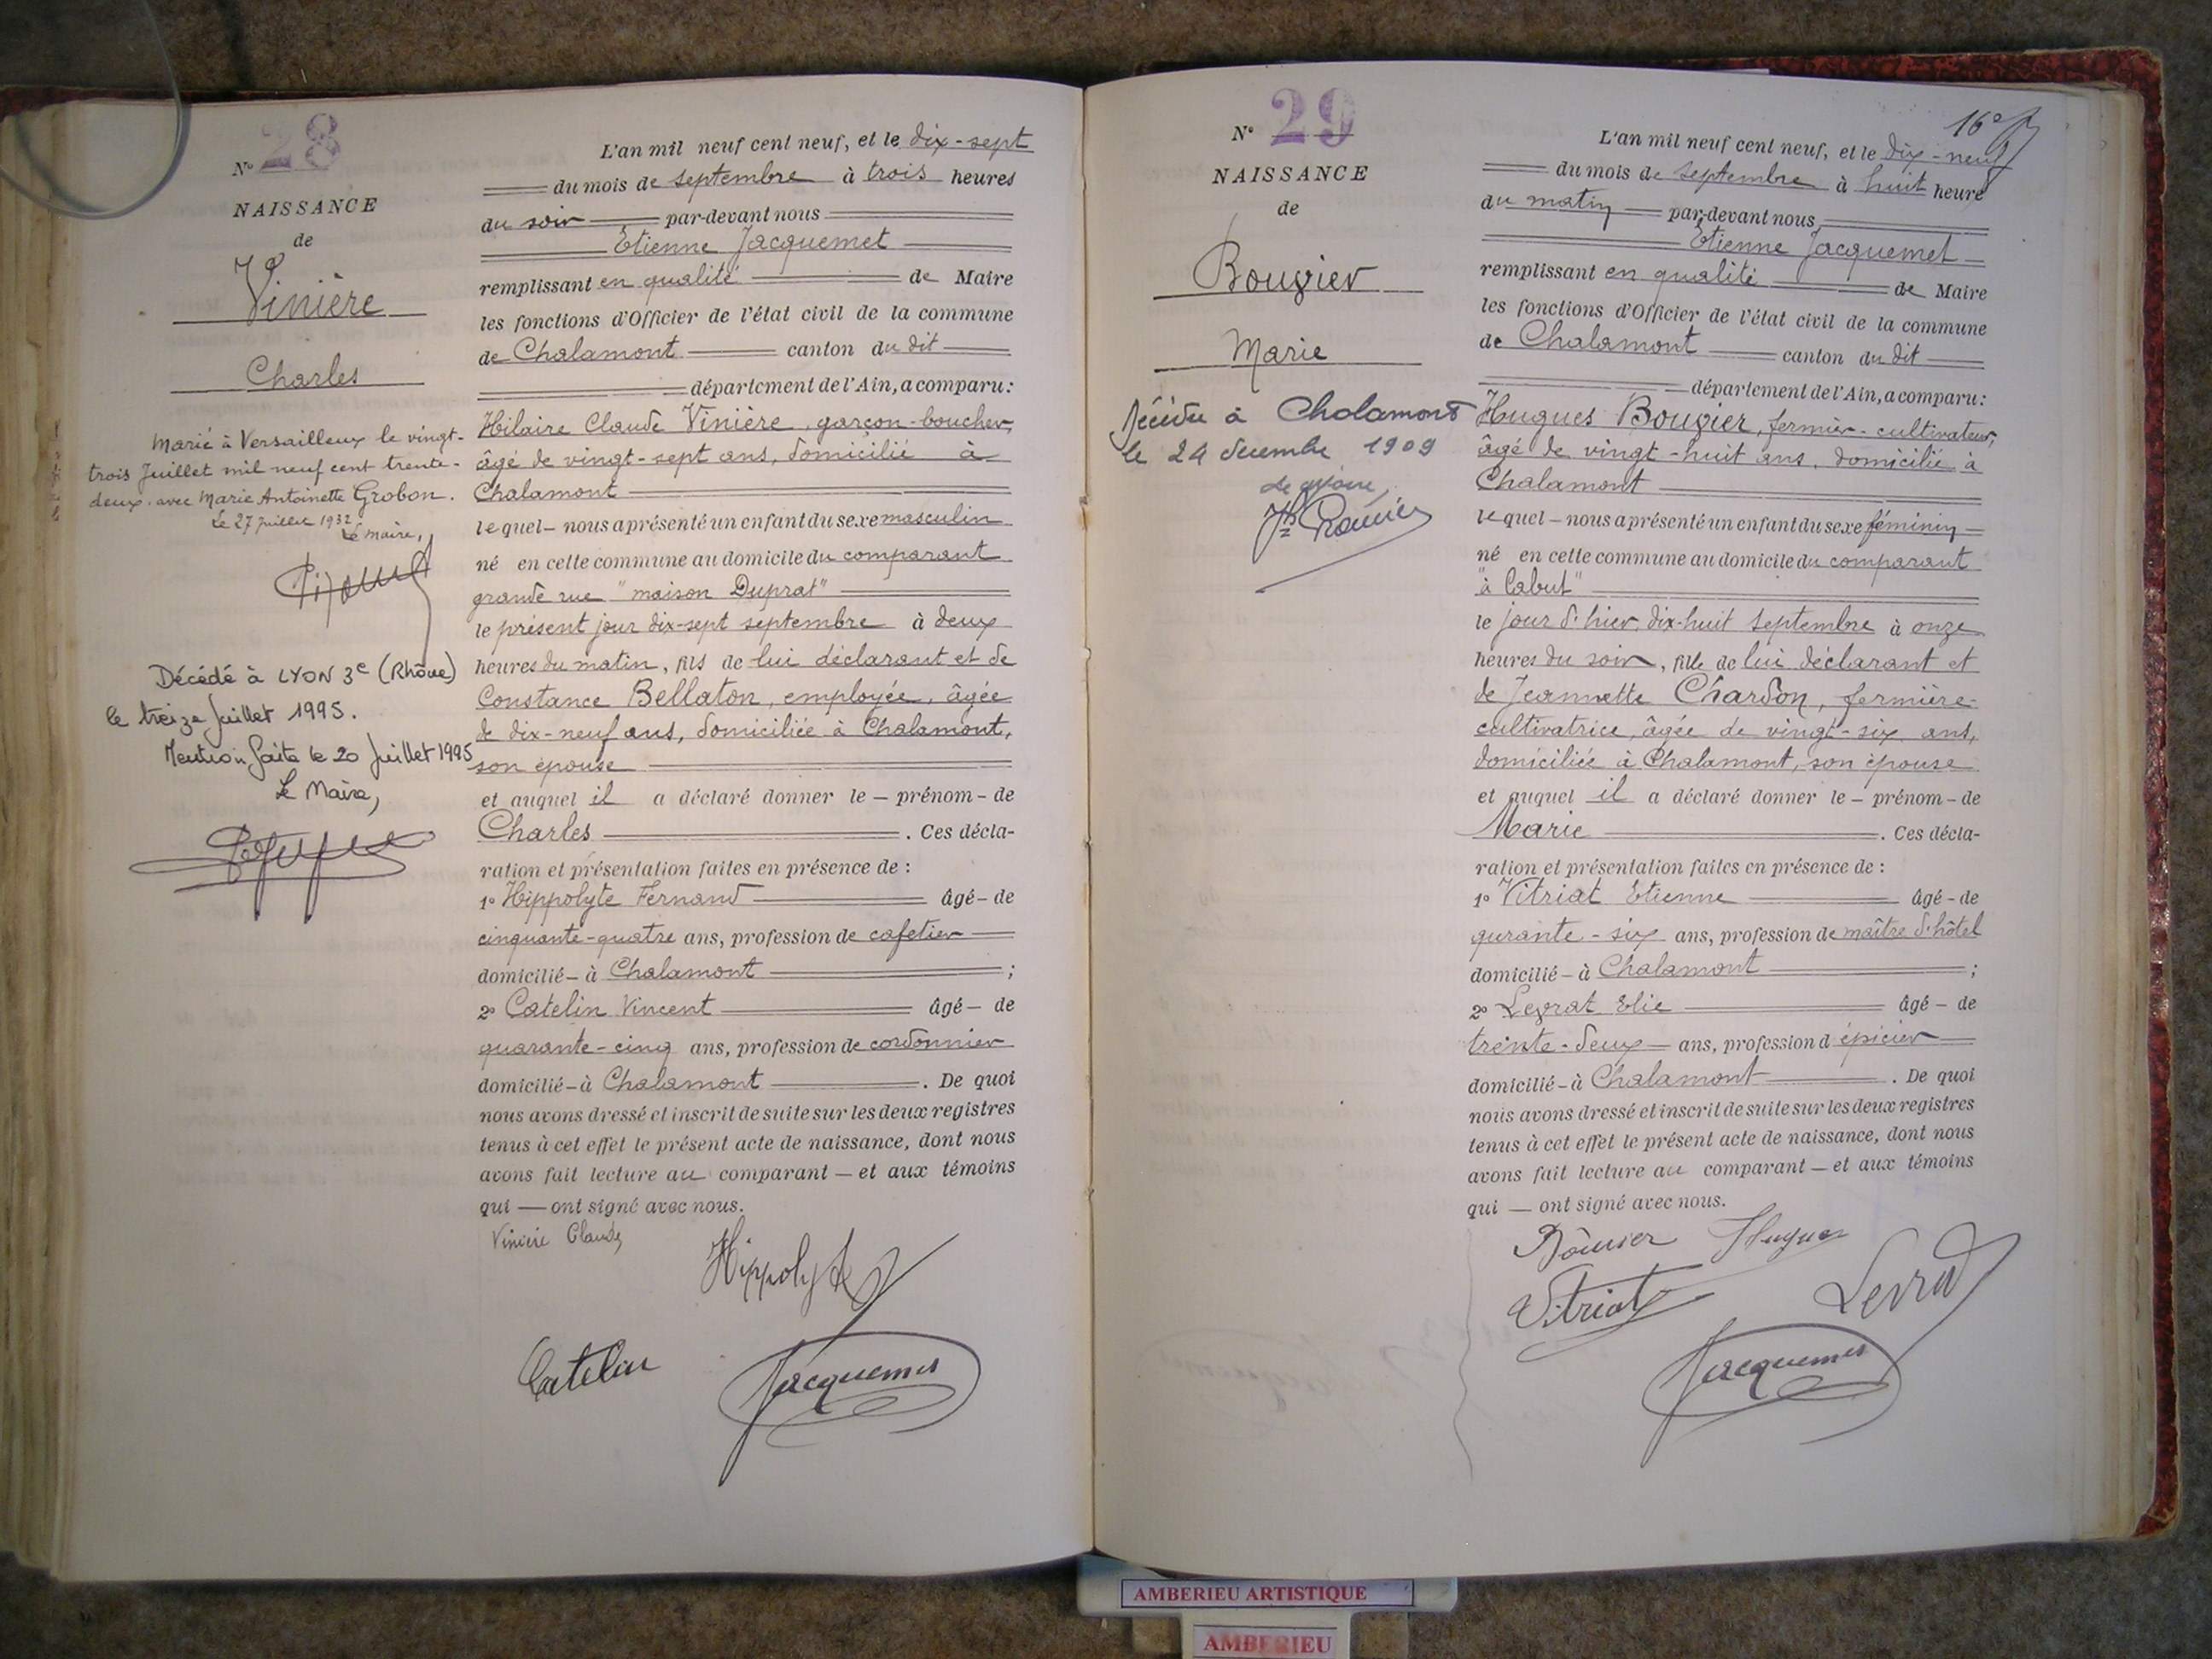 N° 28
NAISSANCE
de
Vinière
Charles
Marié à Versailleux le vingt-
trois Juillet mil neuf cent trente-
deux avec Marie Antoinette Grobon.
Le 27 juillet 1932
Le maire,
Décédé à LYON 3e (Rhône)
le treize Juillet 1995.
Mention faite le 20 Juillet 1995
Le Maire,
L'an mil neuf cent neuf, et le dix-sept
du mois de septembre à trois heures
du soir par-devant nous
Etienne Jacquemet
remplissant en qualité de Maire
les fonctions d'Officier de l'état civil de la commune
de Chalamont canton du dit
département de l'Ain, a comparu:
Hilaire Claude Vinière, garçon-boucher,
âgé de vingt-sept ans, domicilié à
Chalamont
lequel - nous a présenté un enfant du sexe masculin
né en cette commune au domicile du comparant
grande rue "maison Duprat"
le présent jour dix-sept septembre à deux
heures du matin, fils de lui déclarant et de
Constance Bellaton, employée, âgée
de dix-neuf ans, domiciliée à Chalamont,
son épouse
et auquel il a déclaré donner le - prénom - de
Charles . Ces décla-
ration et présentation faites en présence de :
1° Hippolyte Fernand âgé - de
cinquante-quatre ans, profession de cafetier
domicilié - à Chalamont ;
2° Catelin Vincent âgé - de
quarante-cinq ans, profession de cordonnier
domicilié - à Chalamont . De quoi
nous avons dressé et inscrit de suite sur les deux registres
tenus à cet effet le présent acte de naissance, dont nous
avons fait lecture au comparant - et aux témoins
qui — ont signé avec nous.
Viniere Claude
Hippolyte
Catelin
Jacquemet
16e
N° 29
NAISSANCE
de
Bouvier
Marie
Décédée à Chalamont
le 24 décembre 1909
Le maire,
L'an mil neuf cent neuf, et le dix-neuf
du mois de septembre à huit heure
du matin par-devant nous
Etienne Jacquemet
remplissant en qualité de Maire
les fonctions d'Officier de l'état civil de la commune
de Chalamont canton du dit
département de l'Ain, a comparu:
Hugues Bouvier, fermier-cultivateur,
âgé de vingt-huit ans, domicilié à
Chalamont
lequel - nous a présenté un enfant du sexe féminin
né en cette commune au domicile du comparant
"à Cabut"
le jour d'hier dix-huit septembre à onze
heures du soir, fille de lui déclarant et
de Jeannette Chardon, fermière-
cultivatrice, âgée de vingt-six ans,
domiciliée à Chalamont, son épouse
et auquel il a déclaré donner le - prénom - de
Marie . Ces décla-
ration et présentation faites en présence de :
1° Vitriat Etienne âgé - de
qurante-six ans, profession de maître d'hôtel
domicilié - à Chalamont ;
2° Levrat Elie âgé - de
trente-deux ans, profession d épicier
domicilié - à Chalamont . De quoi
nous avons dressé et inscrit de suite sur les deux registres
tenus à cet effet le présent acte de naissance, dont nous
avons fait lecture au comparant - et aux témoins
qui — ont signé avec nous.
Bouvier Hugues
Vitriat
Levrat
Jacquemet
AMBERIEU ARTISTIQUE
AMBERIEU